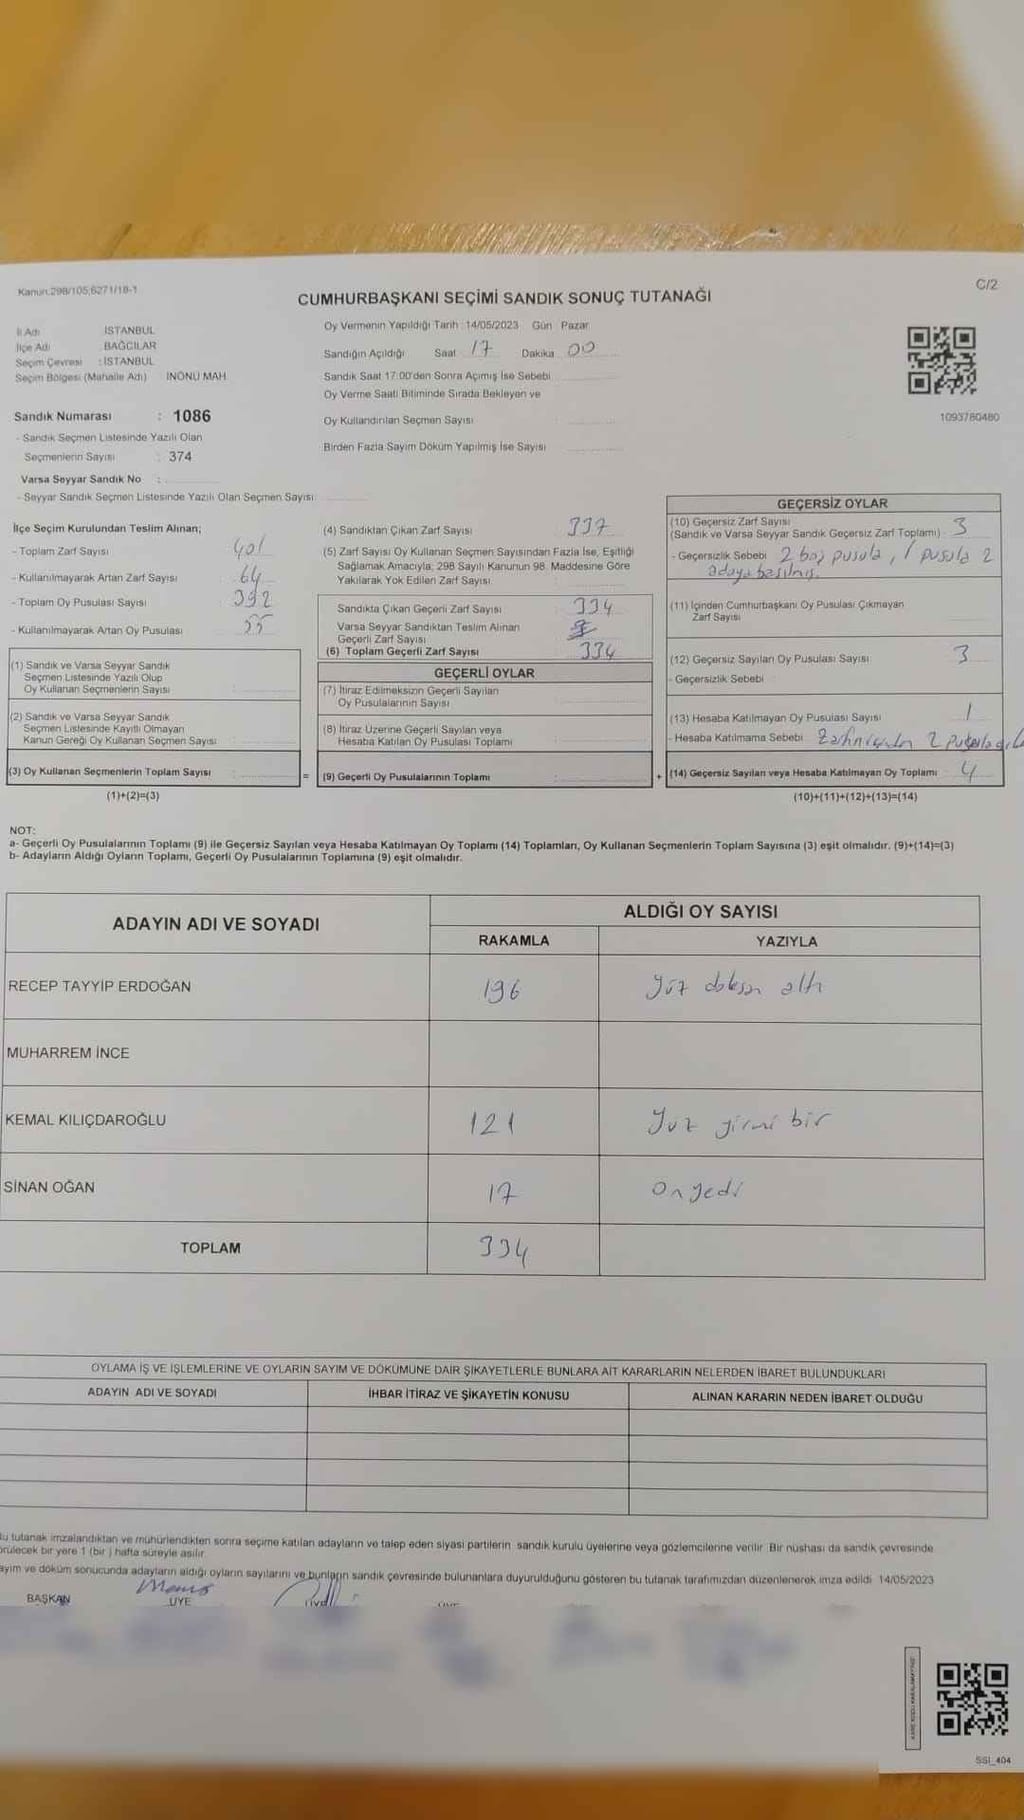 Kanun.298/105;6271/18-1
C/2
CUMHURBAŞKANI SEÇİMİ SANDIK SONUÇ TUTANAĞI
İl Adı : İSTANBUL
İlçe Adı : BAĞCILAR
Seçim Çevresi : İSTANBUL
Seçim Bölgesi (Mahalle Adı) İNÖNÜ MAH
Sandık Numarası : 1086
- Sandık Seçmen Listesinde Yazılı Olan
Seçmenlerin Sayısı : 374
Varsa Seyyar Sandık No :
- Seyyar Sandık Seçmen Listesinde Yazılı Olan Seçmen Sayısı:
Oy Vermenin Yapıldığı Tarih :14/05/2023 Gün :Pazar
Sandığın Açıldığı Saat :17 Dakika :00
Sandık Saat 17:00'den Sonra Açımış İse Sebebi
Oy Verme Saati Bitiminde Sırada Bekleyen ve
Oy Kullandırılan Seçmen Sayısı
Birden Fazla Sayım Döküm Yapılmış İse Sayısı
1093780480
İlçe Seçim Kurulundan Teslim Alınan;
- Toplam Zarf Sayısı : 401
- Kullanılmayarak Artan Zarf Sayısı : 64
- Toplam Oy Pusulası Sayısı : 392
- Kullanılmayarak Artan Oy Pusulası : 55
(1) Sandık ve Varsa Seyyar Sandık
Seçmen Listesinde Yazılı Olup
Oy Kullanan Seçmenlerin Sayısı :
(2) Sandık ve Varsa Seyyar Sandık
Seçmen Listesinde Kayıtlı Olmayan
Kanun Gereği Oy Kullanan Seçmen Sayısı :
(3) Oy Kullanan Seçmenlerin Toplam Sayısı :
(1)+(2)=(3)
=
(4) Sandıktan Çıkan Zarf Sayısı : 337
(5) Zarf Sayısı Oy Kullanan Seçmen Sayısından Fazla İse, Eşitliği
Sağlamak Amacıyla, 298 Sayılı Kanunun 98. Maddesine Göre
Yakılarak Yok Edilen Zarf Sayısı :
Sandıkta Çıkan Geçerli Zarf Sayısı : 334
Varsa Seyyar Sandıktan Teslim Alınan
Geçerli Zarf Sayısı :
(6) Toplam Geçerli Zarf Sayısı : 334
GEÇERLİ OYLAR
(7) İtiraz Edilmeksizin Geçerli Sayılan
Oy Pusulalarının Sayısı :
(8) İtiraz Üzerine Geçerli Sayılan veya
Hesaba Katılan Oy Pusulası Toplamı :
(9) Geçerli Oy Pusulalarının Toplamı :
+
GEÇERSİZ OYLAR
(10) Geçersiz Zarf Sayısı
(Sandık ve Varsa Seyyar Sandık Geçersiz Zarf Toplamı) : 3
- Geçersizlik Sebebi : 2 boş pusula, 1 pusula 2
adaya basılmış.
(11) İçinden Cumhurbaşkanı Oy Pusulası Çıkmayan
Zarf Sayısı :
(12) Geçersiz Sayılan Oy Pusulası Sayısı : 3
- Geçersizlik Sebebi :
(13) Hesaba Katılmayan Oy Pusulası Sayısı : 1
- Hesaba Katılmama Sebebi : 2
(14) Geçersiz Sayılan veya Hesaba Katılmayan Oy Toplamı : 4
(10)+(11)+(12)+(13)=(14)
NOT:
a- Geçerli Oy Pusulalarının Toplamı (9) ile Geçersiz Sayılan veya Hesaba Katılmayan Oy Toplamı (14) Toplamları, Oy Kullanan Seçmenlerin Toplam Sayısına (3) eşit olmalıdır. (9)+(14)=(3)
b- Adayların Aldığı Oyların Toplamı, Geçerli Oy Pusulalarının Toplamına (9) eşit olmalıdır.
ADAYIN ADI VE SOYADI
ALDIĞI OY SAYISI
RAKAMLA YAZIYLA
RECEP TAYYİP ERDOĞAN 196 yüz doksan altı
MUHARREM İNCE
KEMAL KILIÇDAROĞLU 121 yüz yirmi bir
SİNAN OĞAN 17 on yedi
TOPLAM 334
OYLAMA İŞ VE İŞLEMLERİNE VE OYLARIN SAYIM VE DÖKÜMÜNE DAİR ŞİKAYETLERLE BUNLARA AİT KARARLARIN NELERDEN İBARET BULUNDUKLARI
ADAYIN ADI VE SOYADI İHBAR İTİRAZ VE ŞİKAYETİN KONUSU ALINAN KARARIN NEDEN İBARET OLDUĞU
u tutanak imzalandıktan ve mühürlendikten sonra seçime katılan adayların ve talep eden siyasi partilerin sandık kurulu üyelerine veya gözlemcilerine verilir. Bir nüshası da sandık çevresinde
örülecek bir yere 1 (bir ) hafta süreyle asılır.
ayım ve döküm sonucunda adayların aldığı oyların sayılarını ve bunların sandık çevresinde bulunanlara duyurulduğunu gösteren bu tutanak tarafımızdan düzenlenerek imza edildi. 14/05/2023
BAŞKAN ÜYE
SSI_404